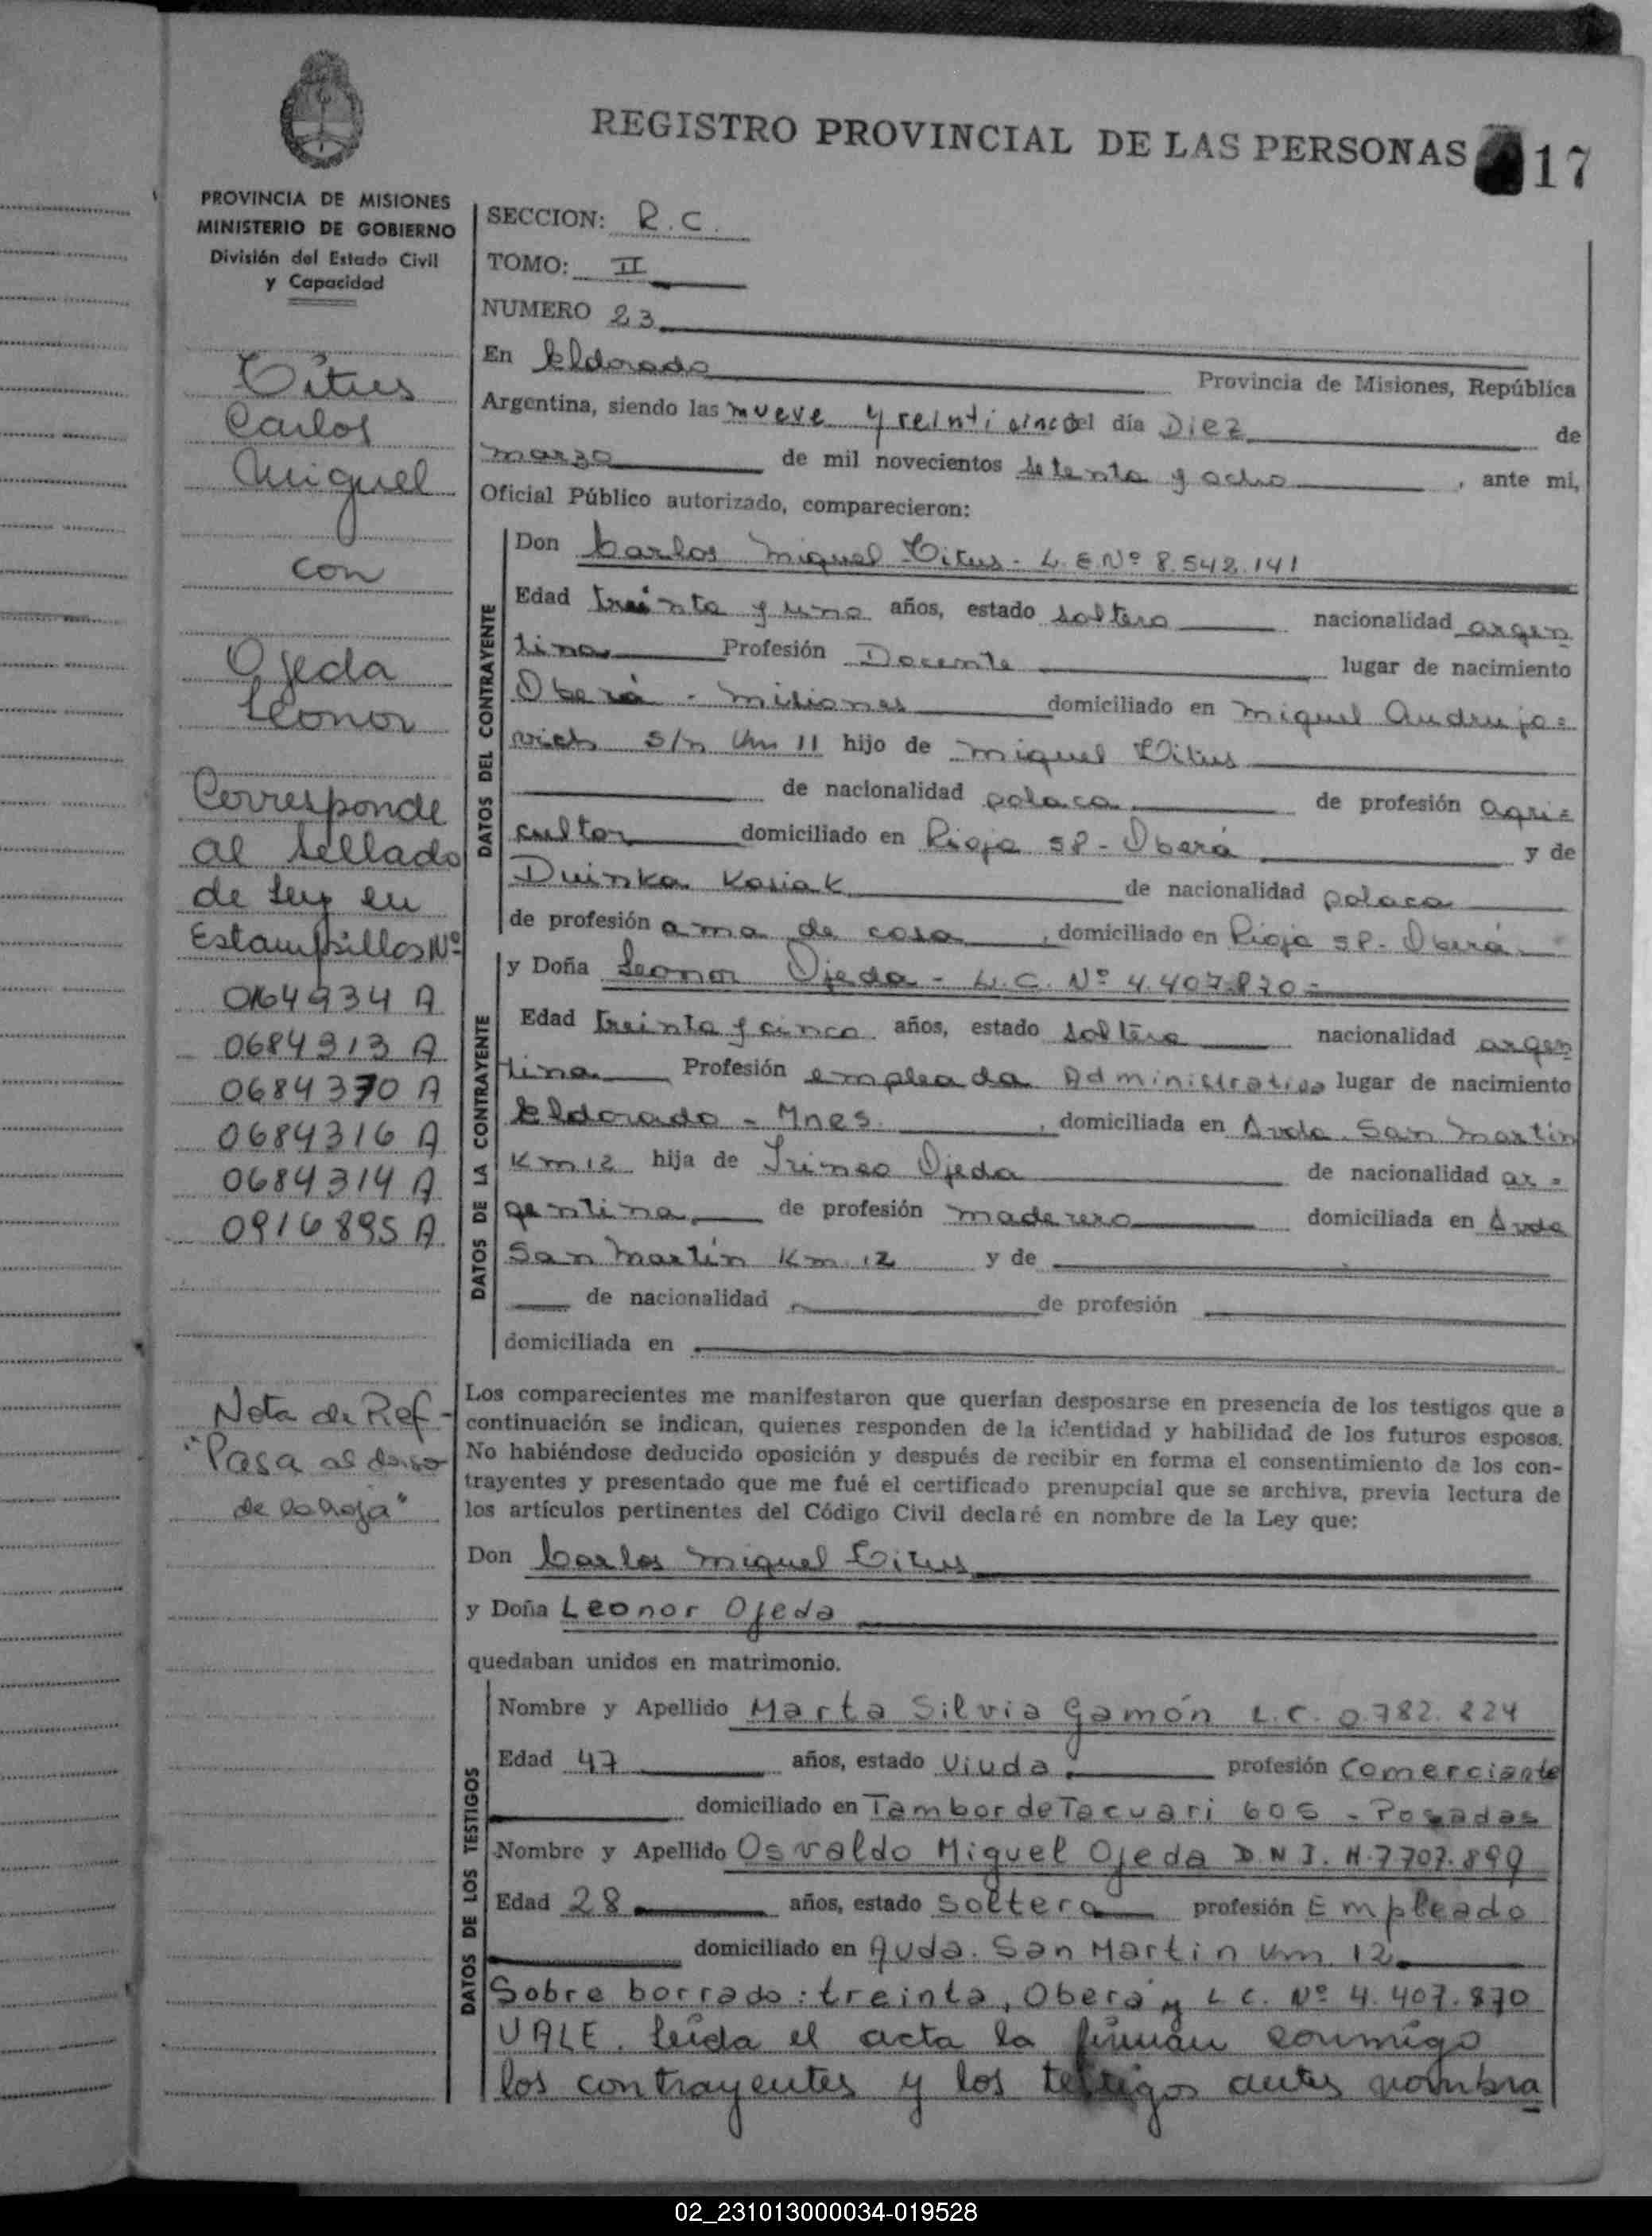 REGISTRO PROVINCIAL DE LAS PERSONAS 17
PROVINCIA DE MISIONES
MINISTERIO DE GOBIERNO
División del Estado Civil
y Capacidad
Titus
Carlos
Miguel
con
Ojeda
Leonor
Corresponde
al sellado
de Ley en
Estampillas Nº
0164934 A
0684313 A
0684370 A
0684316 A
0684314 A
0916895 A
Nota de Ref-
"Pasa al dorso
de la hoja"
SECCION: R.C.
TOMO: II
NUMERO 23
En Eldorado Provincia de Misiones, República
Argentina, siendo las nueve y veinticinco del día Diez de
marzo de mil novecientos setenta y ocho, ante mi,
Oficial Público autorizado, comparecieron:
DATOS DEL CONTRAYENTE
Don Carlos Miguel Titus - L.E Nº 8.542.141
Edad treinta y uno años, estado soltero nacionalidad argen
tina Profesión Docente lugar de nacimiento
Oberá - Misiones domiciliado en Miguel Andrujo=
vich s/n Km 11 hijo de Miguel Titus
de nacionalidad polaca de profesión agri=
cultor domiciliado en Rioja 58 - Oberá y de
Duinka Kosiak de nacionalidad polaca
de profesión ama de casa, domiciliado en Rioja 58 - Oberá
DATOS DE LA CONTRAYENTE
y Doña Leonor Ojeda - L.C. Nº 4.407.870=
Edad treinta y cinco años, estado soltera nacionalidad argen
tina Profesión empleada Administrativa lugar de nacimiento
Eldorado - Mnes. , domiciliada en Avda. San Martín
Km 12 hija de Irineo Ojeda de nacionalidad ar=
gentina de profesión maderero domiciliada en Avda
San Martín Km. 12 y de
de nacionalidad de profesión
domiciliada en
Los comparecientes me manifestaron que querían desposarse en presencia de los testigos que a
continuación se indican, quienes responden de la identidad y habilidad de los futuros esposos.
No habiéndose deducido oposición y después de recibir en forma el consentimiento de los con-
trayentes y presentado que me fué el certificado prenupcial que se archiva, previa lectura de
los artículos pertinentes del Código Civil declaré en nombre de la Ley que:
Don Carlos Miguel Titus
y Doña Leonor Ojeda
quedaban unidos en matrimonio.
DATOS DE LOS TESTIGOS
Nombre y Apellido Marta Silvia Gamón L.C. 0.782.224
Edad 47 años, estado Viuda profesión Comerciante
domiciliado en Tambor de Tacuari 605 - Posadas
Nombre y Apellido Osvaldo Miguel Ojeda D.N.I. M.7707.899
Edad 28 años, estado Soltero profesión Empleado
domiciliado en Avda. San Martin Km. 12
Sobre borrado: treinta, Oberá y L C. Nº 4.407.870
VALE. Leída el acta la firman conmigo
los contrayentes y los testigos antes nombra
02_231013000034-019528